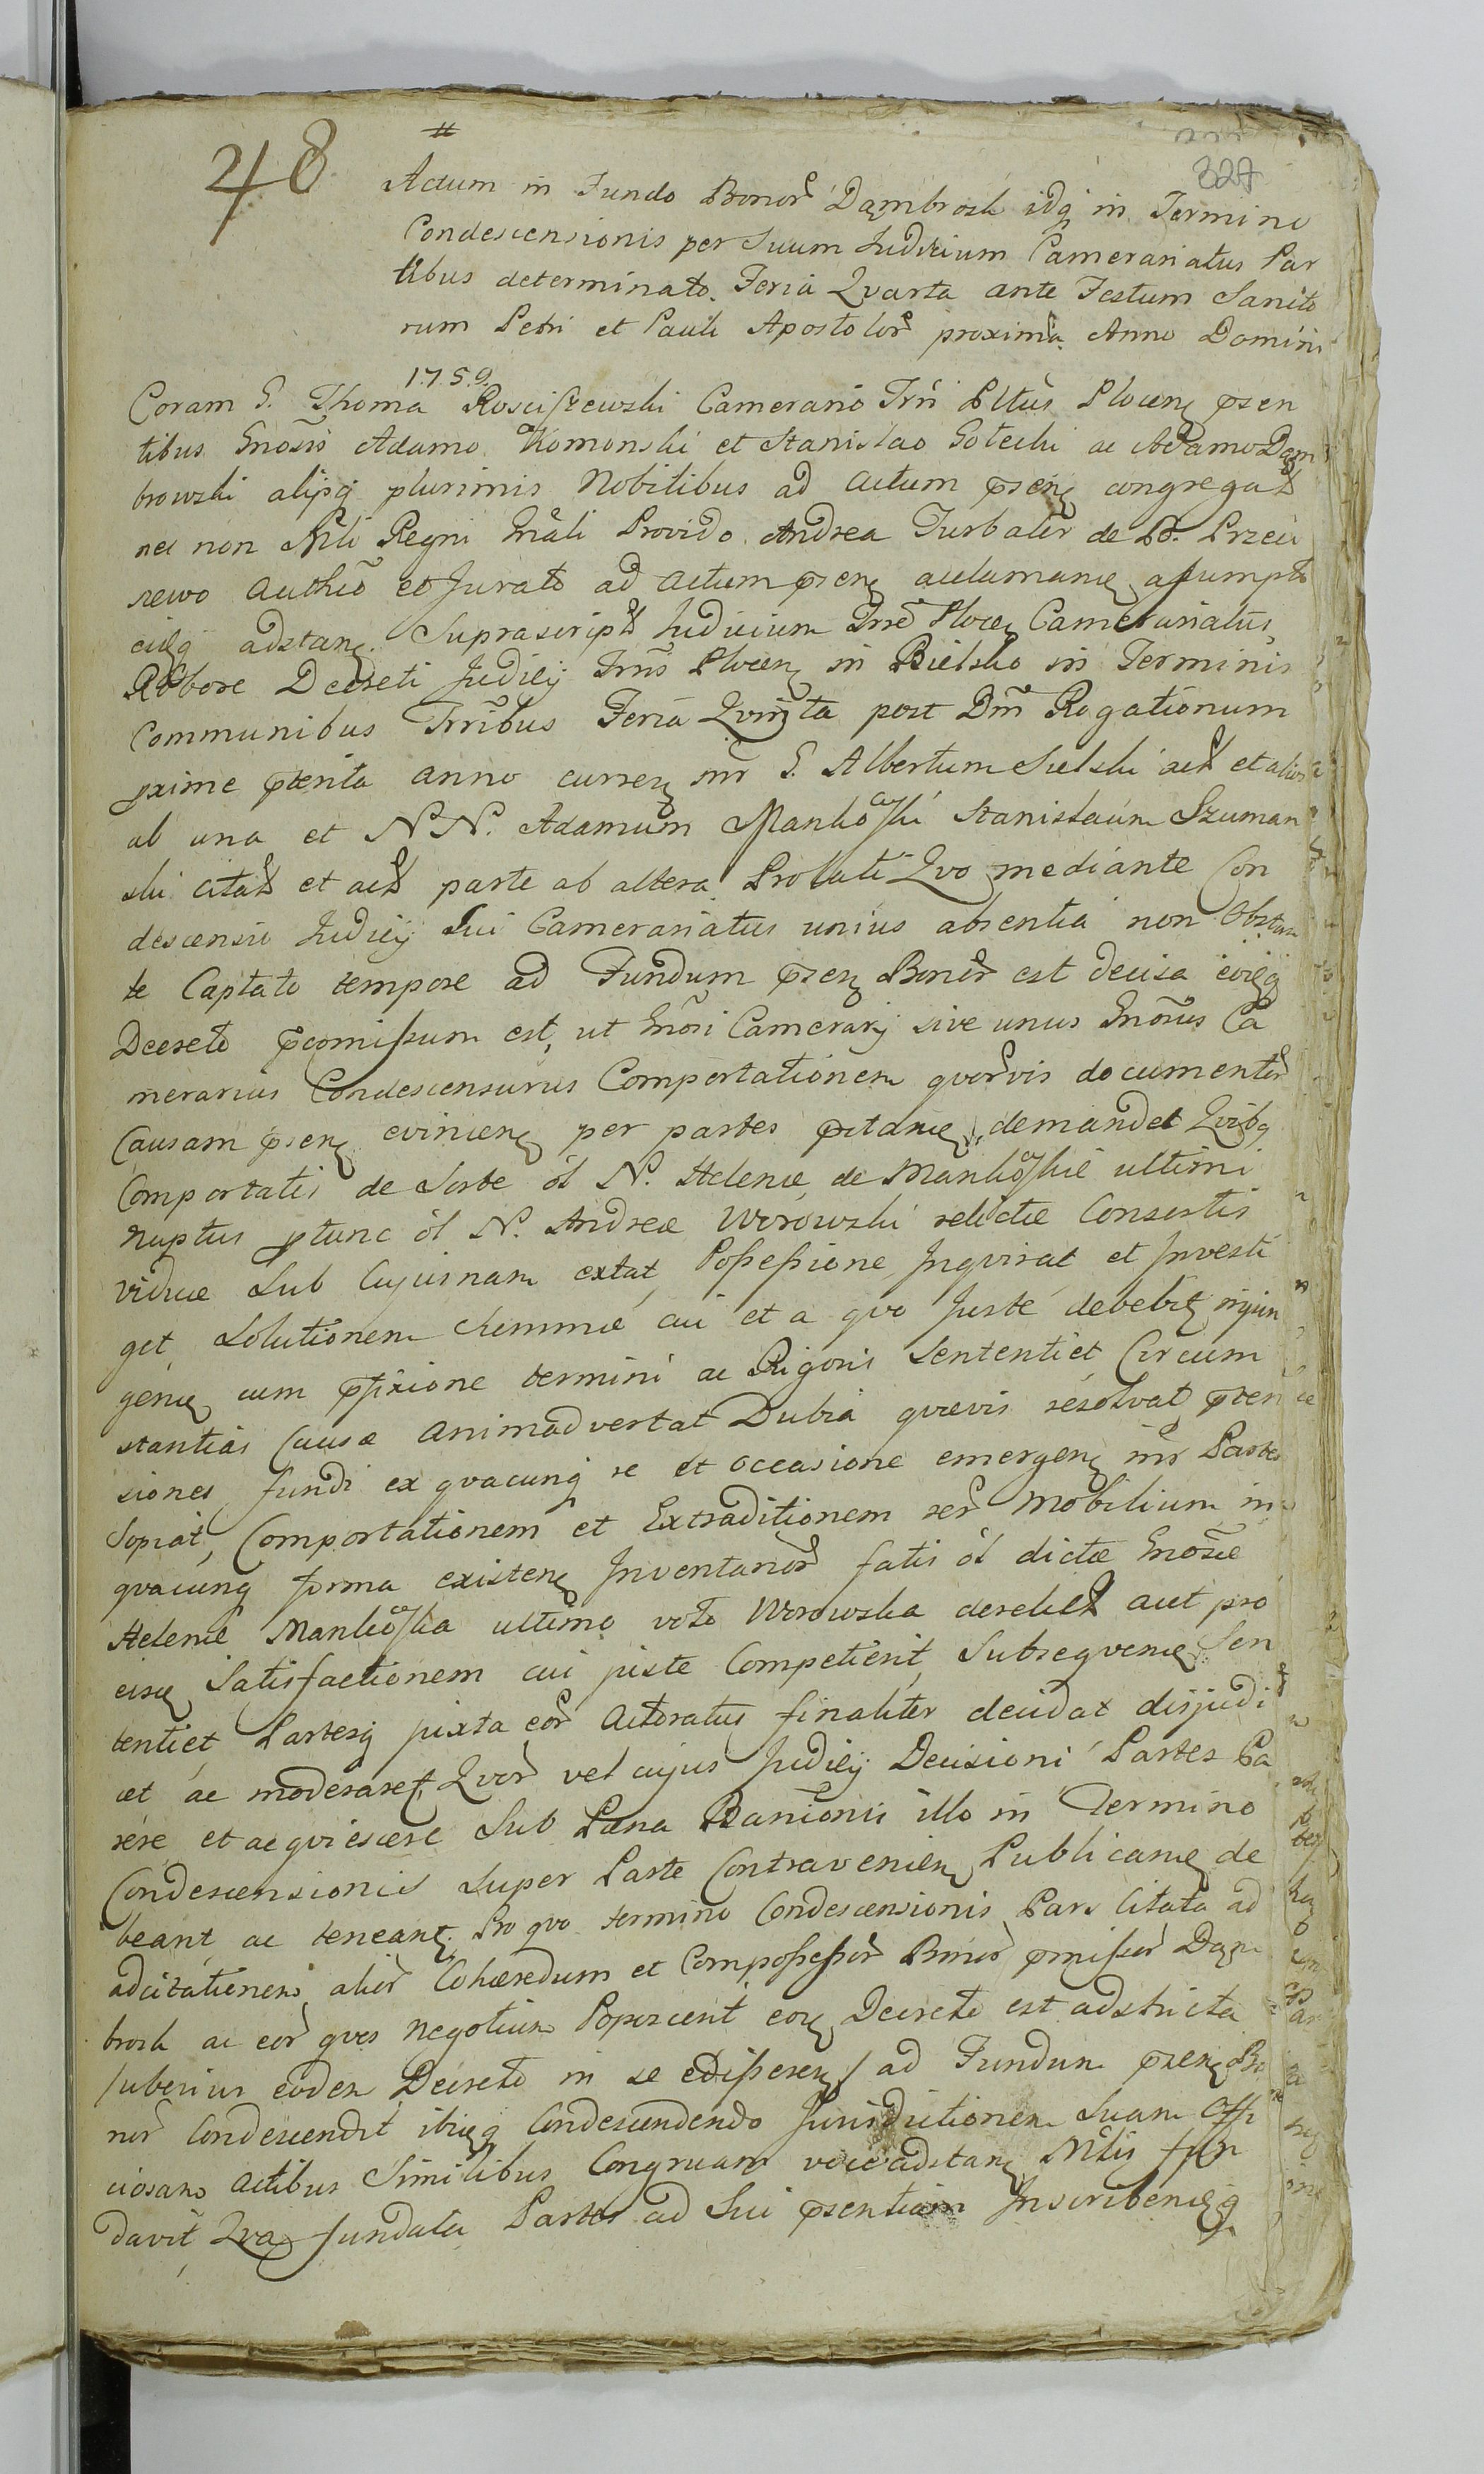 48
327
Actum in Fundo Bonor Dąmbrosk idq in Termino
Condescensionis per Suum Judicium Camerariatus Par
tibus determinato. Feria Qvarta ante Festum Sancto
rum Petri et Pauli Apostolor proxima Anno Domini
1759.
Coram G. Thoma Rosciszewski Camerario Trri Pltus Plocen psen
tibus Gnosis Adamo Komorski et Stanislao Gołecki ac Adamo Dąm
browski alijsq plurimis Nobilibus ad actum psen congregat
nec non Mli Regni Gnali Provido Andrea Turbator de Bo. Przeci
szewo Autheo et Jurato ad actum psen acclaman assumpto
eidq adstan. Suprascript Judicium Trre Plocen Camerariatus,
Robore Decreti Judicij Trris Plocen in Bielsko in Terminis
Communibus Trribus Feria Qvinta post Dni Rogationum
pxime pterita anno curren inr G. Albertum Sielski act et alios
ab una et N.N. Adamum Mankowski Stanislaum Szuman
ski citat et act parte ab altera Prolati Qvo mediante Con
descensio Judicij Sui Camerariatus unius absentia non Obstan
te Captato tempore ad Fundum psen Bonor est decisa eidq
Decreto pcomissum est, ut Gnosi Camerarij sive unus Gnosus Ca
merarius Condescensurus Comportationem qvorvis documentor
Causam psen evincen per partes pstanc, demandet Qvibq
Comportatis de Sorte ol N. Helenæ de Mankowskie ultimi
nuptus ptunc ol N. Andreæ Worowski relictæ Consortis
viduæ Sub Cujusnam extat Possessione Inqvirat et Investi
get Solutionem Summæ cui et a qvo Juste debebit injun
gen cum pfixione termini ac Rigoris Sententiet Circum
stantias Causæ animadvertat Dubia qvævis resolvat pten
siones fundi ex qvacunq re et occasione emergen inr Partes
Sopiat, Comportationem et Extraditionem rer Mobilium in
qvacunq forma existen Inventarior fatis ol dictæ Gnosæ
Helenæ Mankowska ultimo voto Worowska derelict aut pro
eisd Satisfactionem cui juste Competierit Subseqven Sen
tentiet Partesq juxta eor actoratus finaliter decidat disjudi
cet ac moderaret, Qvor vel cujus Judicij Decisioni Partes Pa
rere et acqviescere Sub Pœna Banionis illo in Termino
Condescensionis Super Parte Contravenien Publican de
beant ac teneant. Pro qvo termino Condescensionis Pars Citata ad
adcitationem alior Cohæredum et Compossessor Bonor pmissor Dąm
brosk ac eor qvos negotium Poposcerit eod Decreto est adstricta
/uberius eodem Decreto in se edisseren/ ad Fundum psen Bo
nor Condescendit ibidq Condescendendo Jurisdictionem Suam Offi
ciosam actibus Similibus Congruam voce adstan Mlis fun
davit Qva fundata Partes ad Sui psentiam Inscribendq